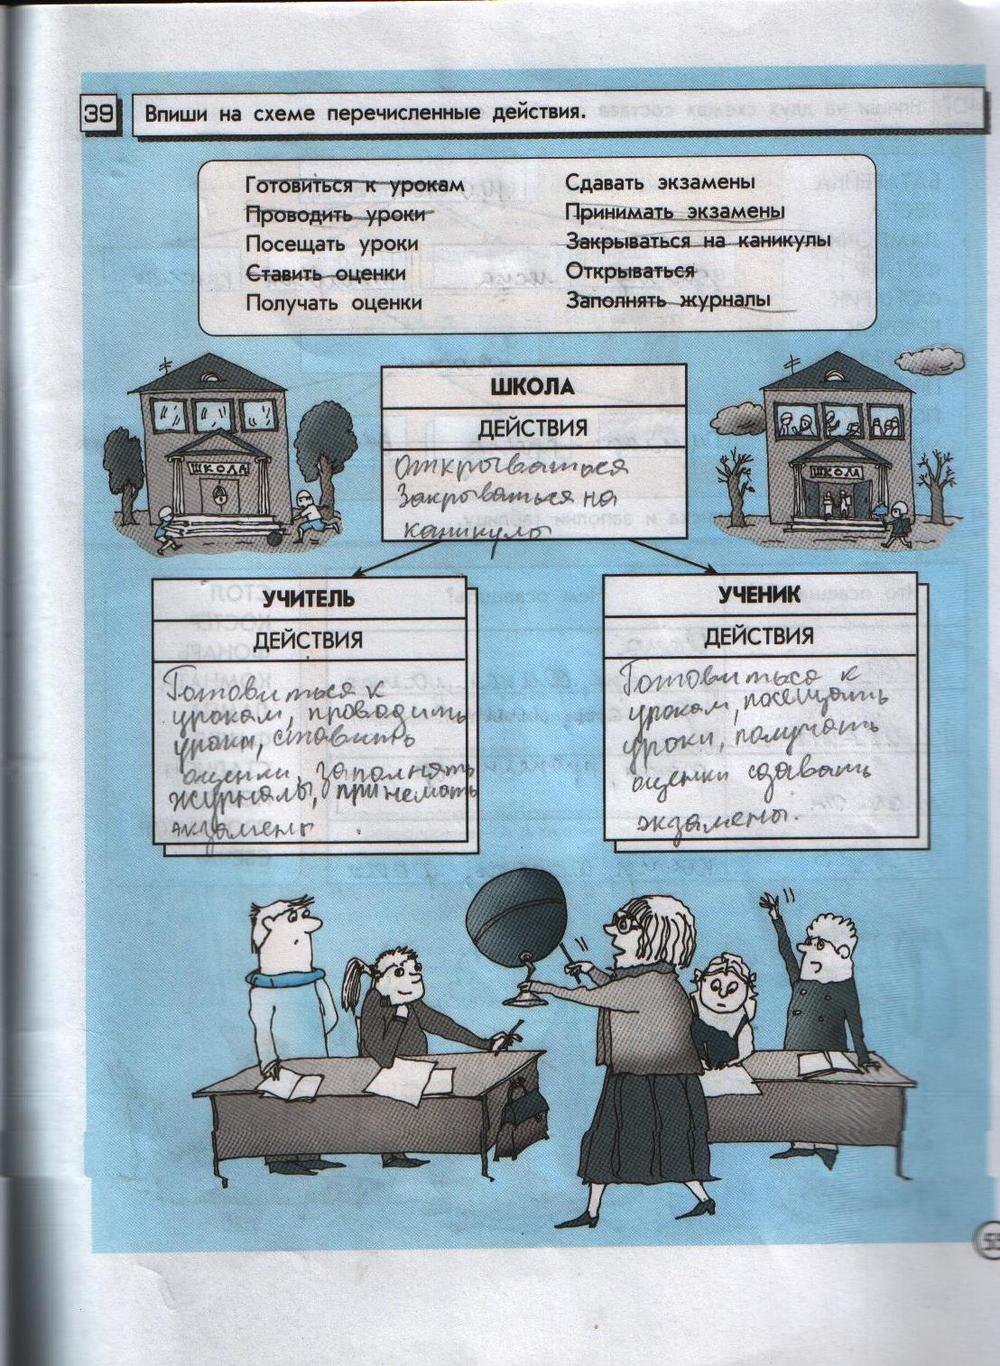 39 Впиши на схеме перечисленные действия.
Готовиться к урокам
Проводить уроки
Посещать уроки
Ставить оценки
Получать оценки
Сдавать экзамены
Принимать экзамены
Закрываться на каникулы
Открываться
Заполнять журналы
ШКОЛА
ДЕЙСТВИЯ
Открываться
Закрываться на
каникулы
ШКОЛА
ШКОЛА
УЧИТЕЛЬ
ДЕЙСТВИЯ
Готовиться к
урокам, проводить
уроки, ставить
оценки, заполнять
журналы, принемать
экзамены.
УЧЕНИК
ДЕЙСТВИЯ
Готовиться к
урокам, посещать
уроки, получать
оценки сдавать
экзамены.
55